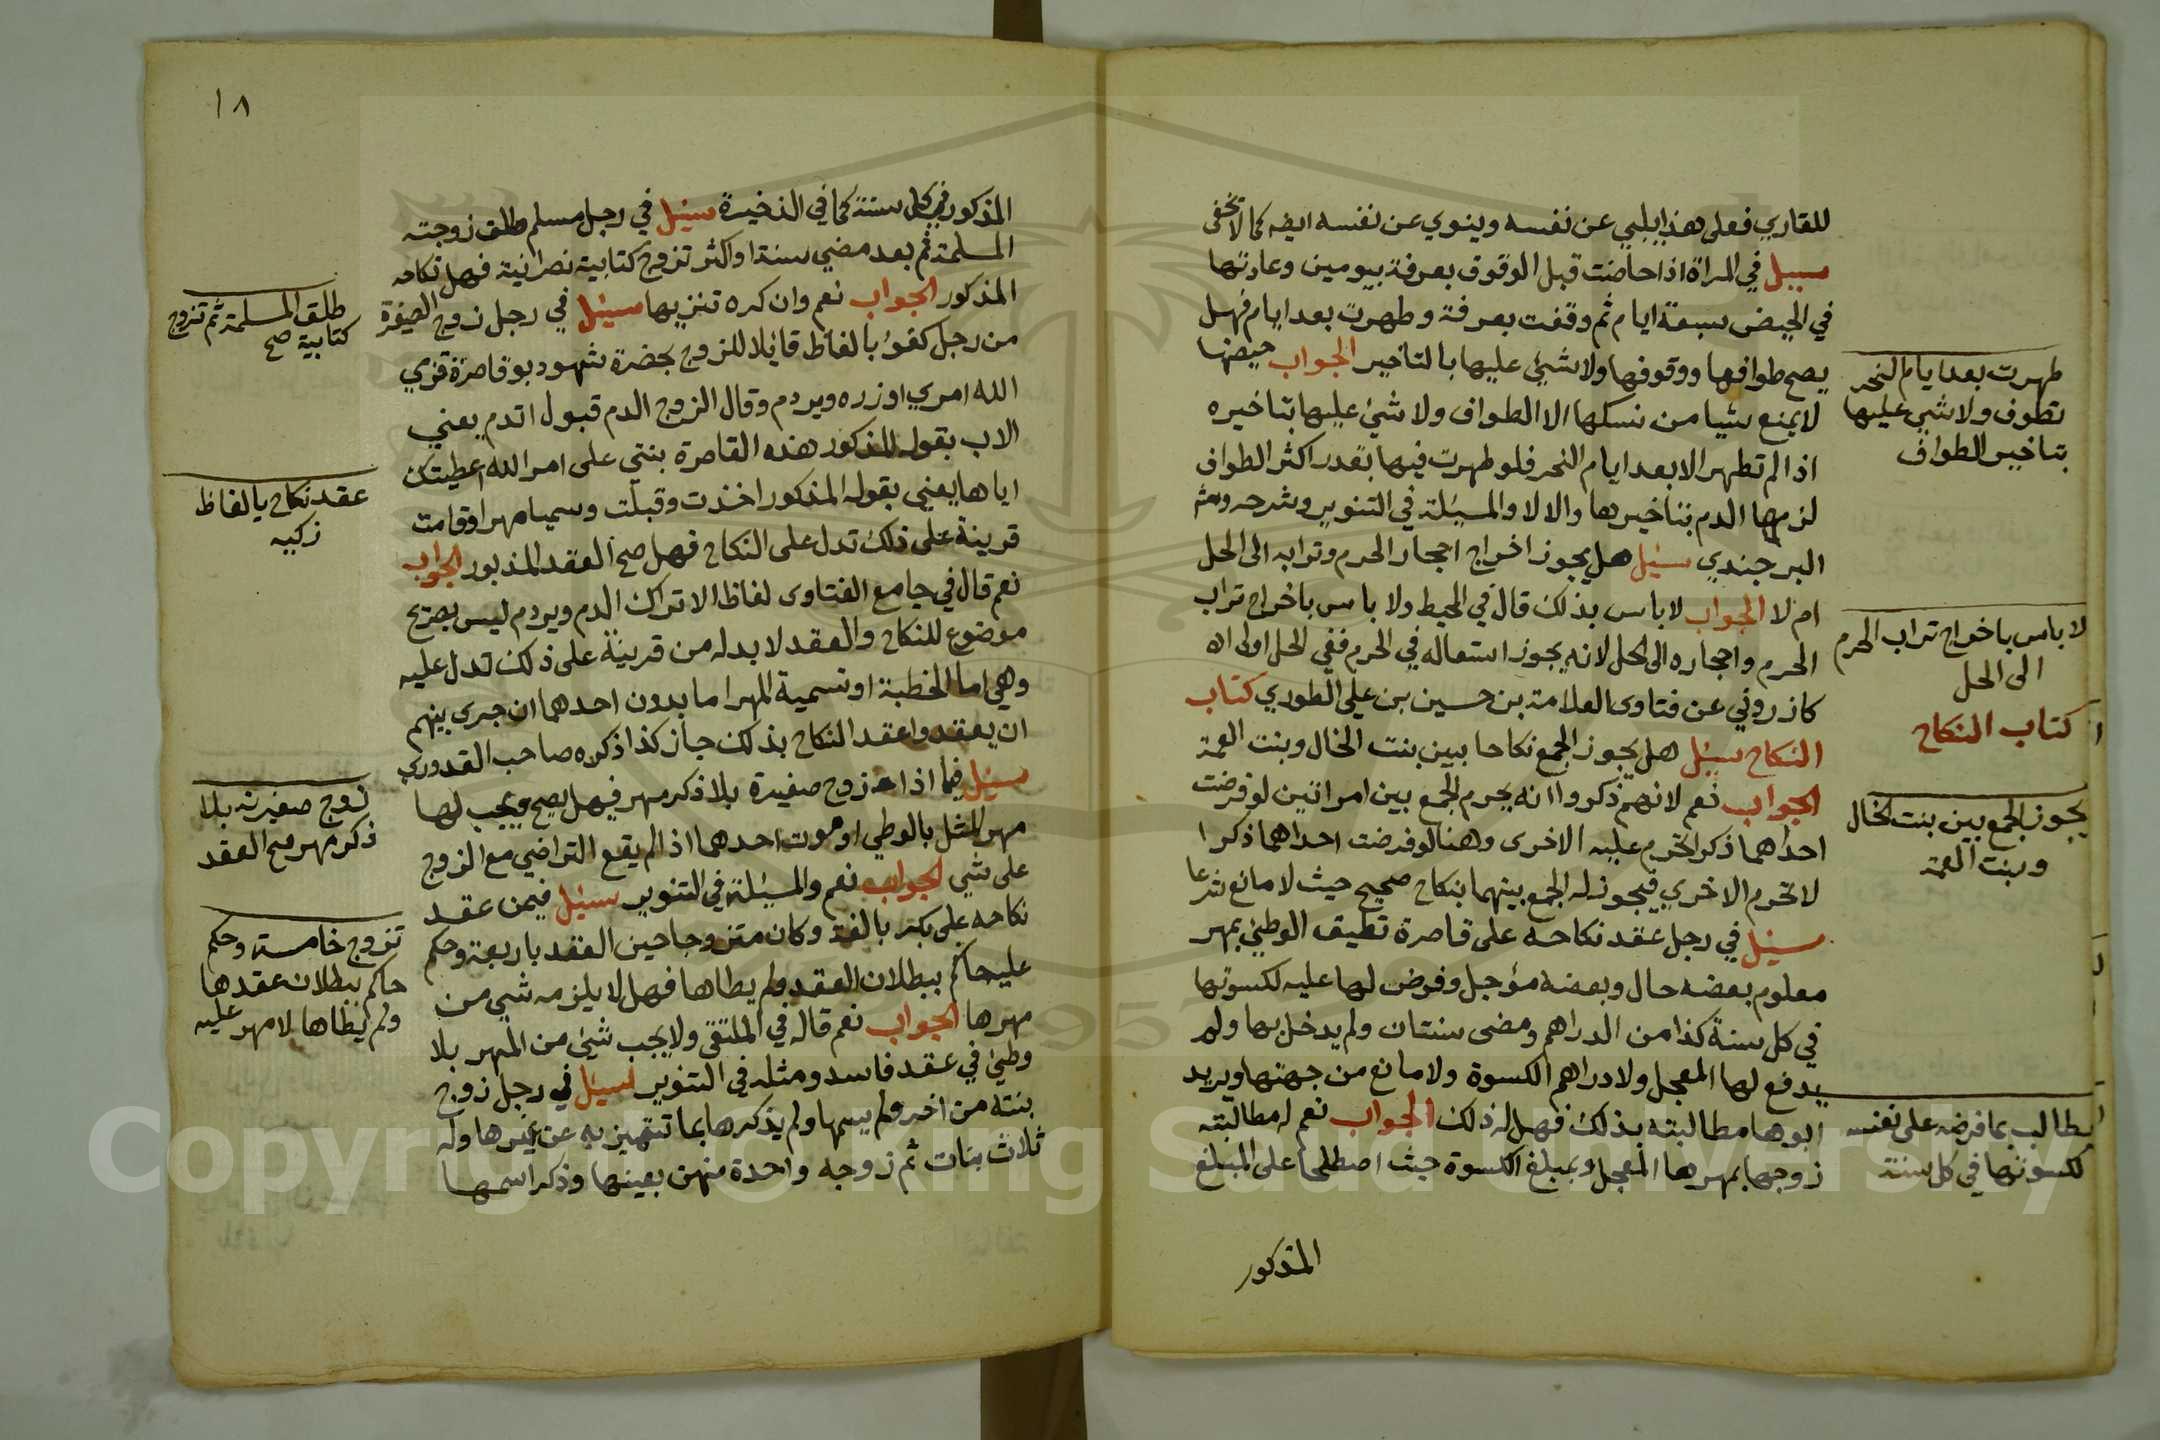 للقاري فعلى هذا يلبي عن نفسه وينوي عن نفسه ايضا كما لا يخفى
سييل في المراة اذا حاضت قبل الوقوف بعرفة بيومين وعادتها
في الحيض سبعة ايام ثم وقفت بعرفة وطهرت بعد ايام فهل
يصح طوافها ووقوفها ولا شيئ عليها بالتاخير الجواب حيضها
لا يمنع شيا من نسكها الا الطواف ولا شيئ عليها بتاخيره
اذا لم تطهر الا بعد ايام النحر فلو طهرت فيها بقدر اكثر الطواف
لزمها الدم بتاخيرها والا لا والمسئلة في التنوير وشرحه ومثله
البرجندي سئيل هل يجوز اخراج احجار الحرم وترابه الى الحل
ام لا الجواب لا باس بذلك قال في المحيط ولا باس باخراج تراب
الحرم واحجاره الى الحل لانه يجوز استعماله في الحرم ففي الحل اولى اه
كازروني عن فتاوى العلامة بن حسين بن علي الطوري كتاب
النكاح سئيل هل يجوز الجمع نكاحا بين بنت الخال وبنت العمة
الجواب نعم لانهم ذكروا انه يحرم الجمع بين امراتين لو فرضت
احداهما ذكرا تحرم عليه الاخرى وهنا لو فرضت احداهما ذكرا
لا تحرم الاخري فيجوز له الجمع بينهما بنكاح صحيح حيث لا مانع شرعا
سئيل في رجل عقد نكاحه على قاصرة تطيق الوطئ بمهر
معلوم بعضه حال وبعضه مؤجل وفرض لها عليه لكسوتها
في كل سنة كذا من الدراهم ومضى سنتان ولم يدخل بها ولم
يدفع لها المعجل ولا دراهم الكسوة ولا مانع من جهتها ويريد
ابوها مطالبته بذلك فهل له ذلك الجواب نعم له مطالبته
زوجها بمهرها المعجل وبمبلغ الكسوة حيث اصطلحا على المبلغ
المذكور
طهرت بعد ايام النحر
تطوف ولا شيئ عليها
بتاخير الطواف
لا باس باخراج تراب الحرم
الى الحل
كتاب النكاح
يجوز الجمع بين بنت الخال
وبنت العمة
يطالب بما فرضه على نفسه
لكسوتها في كل سنة
١٨
المذكور في كل سنة كما في الذخيرة سئيل في رجل مسلم طلق زوجته
المسلمة ثم بعد مضي سنة او اكثر تزوج كتابية نصرانية فهل نكاحه
المذكور الجواب نعم وان كره تنزيها سئيل في رجل زوج الصغيرة
من رجل كفؤ بالفاظ قائلا للزوج بحضرة شهود بو قاصرة قزي
الله امري اوزره ويردم وقال الزوج الدم قبول اتدم يعني
الاب بقوله المذكور هذه القاصرة بنتي على امر الله اعطيتك
اياها يعني بقوله المذكور اخذت وقبلت وسميا مهرا وقامت
قرينة على ذلك تدل على النكاح فهل صح العقد المذبور الجواب
نعم قال في جامع الفتاوى لفاظ الاتراك الدم ويردم ليس بصريح
موضوع للنكاح والعقد لا بد له من قرينة على ذلك تدل عليه
وهي اما الخطبة او تسمية المهر اما بدون احدهما ان جرى بينهم
ان يعقدوا عقد النكاح بذلك جاز كذا ذكره صاحب القدوري
سئيل فيما اذا زوج صغيرة بلا ذكر مهر فهل يصح ويجب لها
مهر المثل بالوطي او موت احدهما اذا لم يقع التراضي مع الزوج
على شي الجواب نعم والمسئلة في التنوير سئيل فيمن عقد
نكاحه على بكر بالغة وكان متزوجا حين العقد باربعة وحكم
عليه حاكم ببطلان العقد ولم يطاها فهل لا يلزمه شي من
مهرها الجواب نعم قال في الملتقى ولا يجب شيئ من المهر بلا
وطئ في عقد فاسد ومثله في التنوير سئيل في رجل زوج
بنته من اخر ولم يسمها ولم يذكرها بما تتميز به عن غيرها وله
ثلاث بنات ثم زوجه واحدة منهن بعينها وذكر اسمها
طلق المسلمة ثم تزوج
كتابية صح
عقد نكاح بالفاظ
تركيه
زوج صغيرته بلا
ذكر مهر صح العقد
تزوج خامسة وحكم
حاكم ببطلان عقدها
ولم يطاها لا مهر عليه
Copyright © King Saud University
1957